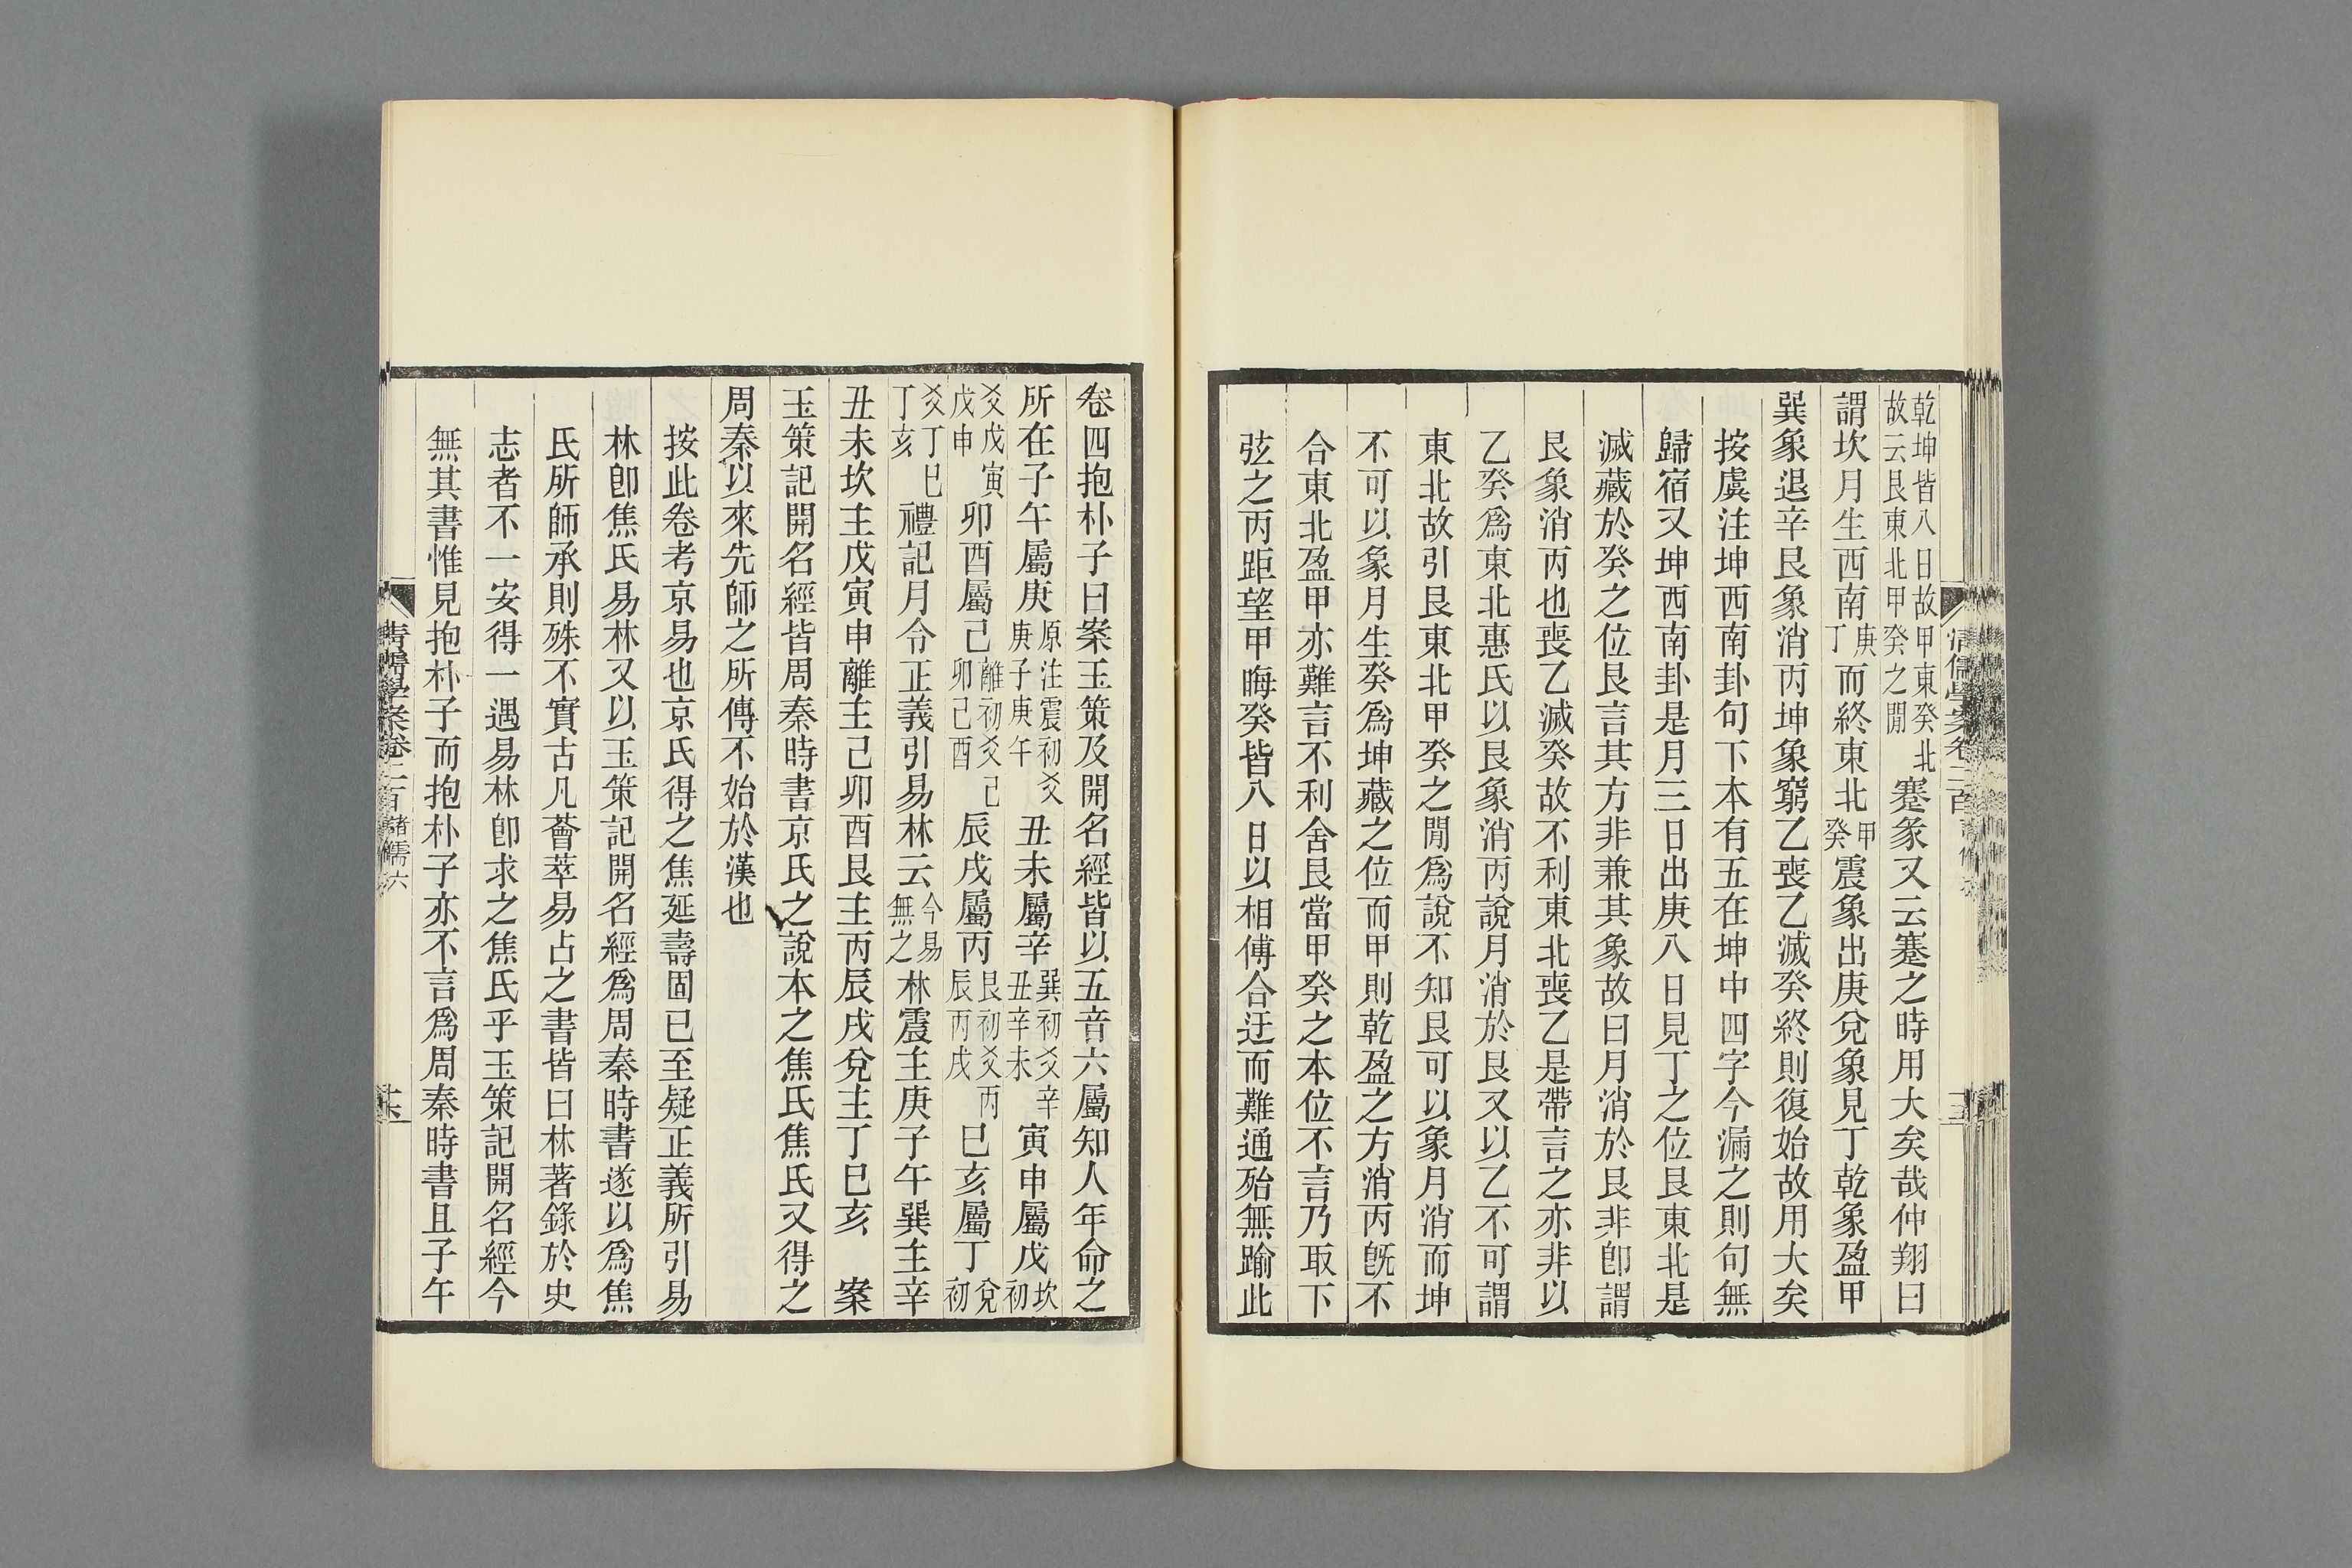 乾坤皆八日故甲東癸北
故云艮東北甲癸之閒
蹇彖又云蹇之時用大矣哉仲翔曰
謂坎月生西南庚丁而終東北甲癸震象出庚兌象見丁乾象盈甲
巽象退辛艮象消丙坤象窮乙喪乙滅癸終則復始故用大矣
按虞注坤西南卦句下本有五在坤中四字今漏之則句無
歸宿又坤西南卦是月三日出庚八日見丁之位艮東北是
滅藏於癸之位艮言其方非兼其象故曰月消於艮非卽謂
艮象消丙也喪乙滅癸故不利東北喪乙是帶言之亦非以
乙癸爲東北惠氏以艮象消丙說月消於艮又以乙不可謂
東北故引艮東北甲癸之閒爲說不知艮可以象月消而坤
不可以象月生癸爲坤藏之位而甲則乾盈之方消丙旣不
合東北盈甲亦難言不利舍艮當甲癸之本位不言乃取下
弦之丙距望甲晦癸皆八日以相傅合迂而難通殆無踰此
卷四抱朴子曰案玉策及開名經皆以五音六屬知人年命之
所在子午屬庚原注震初爻庚子庚午丑未屬辛巽初爻辛丑辛未寅申屬戊坎初
爻戊寅戊申卯酉屬己離初爻己卯己酉辰戌屬丙艮初爻丙辰丙戌巳亥屬丁兌初
爻丁巳丁亥禮記月令正義引易林云今易無之林震主庚子午巽主辛
丑未坎主戊寅申離主己卯酉艮主丙辰戌兌主丁巳亥 案
玉策記開名經皆周秦時書京氏之說本之焦氏焦氏又得之
周秦以來先師之所傳不始於漢也
按此卷考京易也京氏得之焦延壽固已至疑正義所引易
林卽焦氏易林又以玉策記開名經爲周秦時書遂以爲焦
氏所師承則殊不實古凡薈萃易占之書皆曰林著錄於史
志者不一安得一遇易林卽求之焦氏乎玉策記開名經今
無其書惟見抱朴子而抱朴子亦不言爲周秦時書且子午
清儒學案卷二百 諸儒六